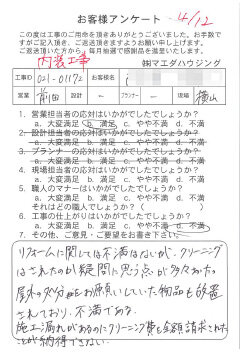 お客様アンケート 4/12
この度は工事のご用命を頂きありがとうございました。お手数で
すがご記入頂き、ご返送頂きますようお願い申し上げます。
ご返送頂いた方から、毎月抽選で感謝品を進呈いたします。
内装工事 ㈱マエダハウジング
工事ID 021-01172 お客様名
営業 前田 設計 ー プランナー ー 現場 横山
1. 営業担当者の応対はいかがでしたでしょうか?
a. 大変満足 b. 満足 c. やや不満 d. 不満
2. 設計担当者の応対はいかがでしたでしょうか?
a. 大変満足 b. 満足 c. やや不満 d. 不満
3. プランナーの応対はいかがでしたでしょうか?
a. 大変満足 b. 満足 c. やや不満 d. 不満
4. 現場担当者の応対はいかがでしたでしょうか?
a. 大変満足 b. 満足 c. やや不満 d. 不満
5. 職人のマナーはいかがでしたでしょうか?
a. 大変満足 b. 満足 c. やや不満 d. 不満
それはどの職人でしょうか? ( )
6. 工事の仕上がりはいかがでしたでしょうか?
a. 大変満足 b. 満足 c. やや不満 d. 不満
7. その他、ご意見・ご要望をお書き下さい。
リフォームに関しては不満はないが、クリーニング
はされたのか疑問に思う点が多々あった。
屋外の処分をお願いしていた物品も放置
されており、不満である。
施工漏れがあるのにクリーニング費を全額請求された
ことが納得できない。